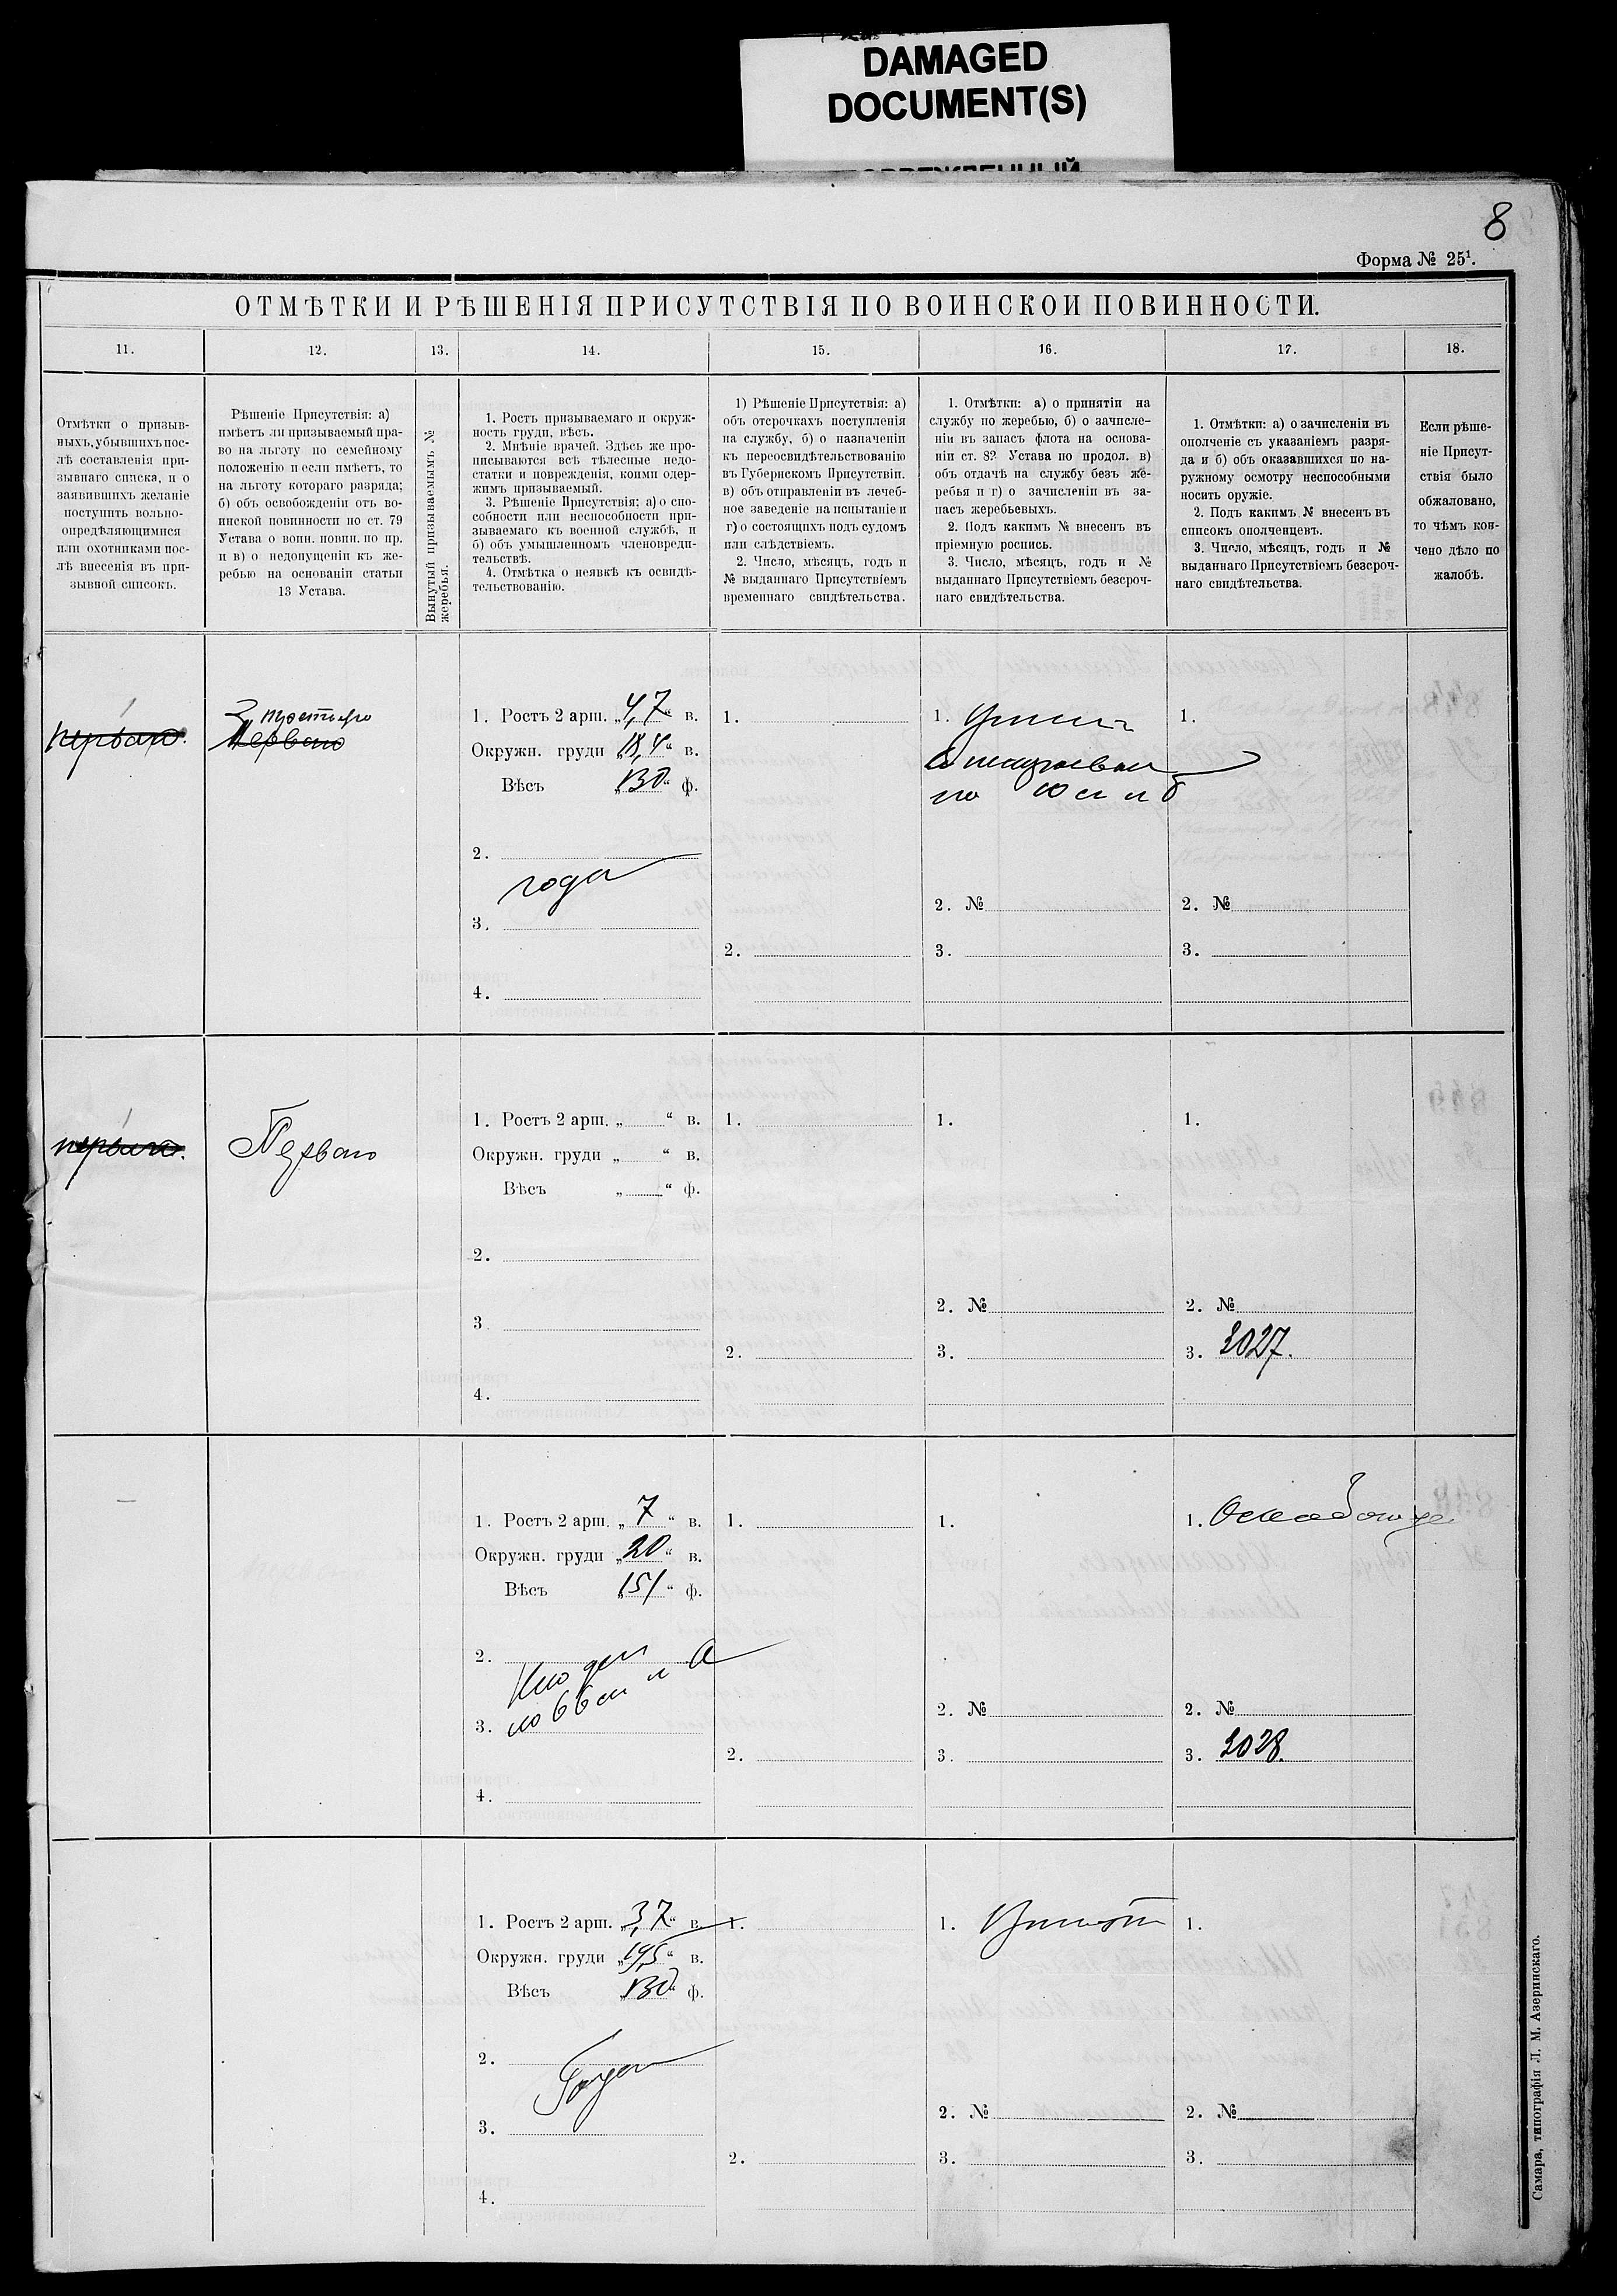 DAMAGED
DOCUMENT(S)
8
Форма № 25¹.
ОТМѢТКИ И РѢШЕНІЯ ПРИСУТСТВІЯ ПО ВОИНСКОЙ ПОВИННОСТИ.
11.
12.
13.
14.
15.
16.
17.
18.
Отмѣтки о призыв-
ныхъ, убывшихъ пос-
лѣ составленія при-
зывнаго списка, и о
заявившихъ желаніе
поступить вольно-
опредѣляющимися
или охотниками пос-
лѣ внесенія въ при-
зывной списокъ.
Рѣшеніе Присутствія: а)
имѣетъ ли призываемый пра-
во на льготу по семейному
положенію и если имѣетъ, то
на льготу котораго разряда;
б) объ освобожденіи отъ во-
инской повинности по ст. 79
Устава о воин. повин. по пр.
и в) о недопущеніи къ же-
ребью на основаніи статьи
13 Устава.
Вынутый призываемымъ №
жеребья.
1. Ростъ призываемаго и окруж-
ность груди, вѣсъ.
2. Мнѣніе врачей. Здѣсь же про-
писываются всѣ тѣлесные недо-
статки и поврежденія, коими одер-
жимъ призываемый.
3. Рѣшеніе Присутствія; а) о спо-
собности или неспособности при-
зываемаго къ военной службѣ, и
б) объ умышленномъ членовреди-
тельствѣ.
4. Отмѣтка о неявкѣ къ освидѣ-
тельствованію.
1) Рѣшеніе Присутствія: а)
объ отсрочкахъ поступленія
на службу, б) о назначеніи
къ переосвидѣтельствованію
въ Губернскомъ Присутствіи.
в) объ отправленіи въ лечеб-
ное заведеніе на испытаніе и
г) о состоящихъ подъ судомъ
или слѣдствіемъ.
2. Число, мѣсяцъ, годъ и
№ выданнаго Присутствіемъ
временнаго свидѣтельства.
1. Отмѣтки: а) о принятіи на
службу по жеребью, б) о зачисле-
ніи въ запасъ флота на основа-
ніи ст. 82 Устава по продол. в)
объ отдачѣ на службу безъ же-
ребья и г) о зачисленіи въ за-
пасъ жеребьевыхъ.
2. Подъ какимъ № внесенъ въ
пріемную роспись.
3. Число, мѣсяцъ, годъ и №
выданнаго Присутствіемъ безсроч-
наго свидѣтельства.
1. Отмѣтки: а) о зачисленіи въ
ополченіе съ указаніемъ разря-
да и б) объ оказавшихся по на-
ружному осмотру неспособными
носить оружіе.
2. Подъ какимъ № внесенъ въ
списокъ ополченцевъ.
3. Число, мѣсяцъ, годъ и №
выданнаго Присутствіемъ безсроч-
наго свидѣтельства.
Если рѣше-
ніе Присут-
ствія было
обжаловано,
то чѣмъ кон-
чено дѣло по
жалобѣ.
перваго.
Перваго
1. Ростъ 2 арш. „4,7“ в.
Окружн. груди „18,4“ в.
Вѣсъ „130“ ф.
2.
годен
3.
4.
1.
2.
1.
по
2. №
3.
1.
2. №
3.
перваго.
Перваго
1. Ростъ 2 арш. „ “ в.
Окружн. груди „ “ в.
Вѣсъ „ “ ф.
2.
3
4.
1.
2.
1.
2. №
3.
1.
2. №
3. 2027.
1. Ростъ 2 арш. „7“ в.
Окружн. груди „20“ в.
Вѣсъ „151“ ф.
2.
по 66 ст л А
3.
4.
1.
2.
1.
2. №
3.
1.
2. №
3. 2028.
1. Ростъ 2 арш. „3,7“ в.
Окружн. груди „19,5“ в.
Вѣсъ „130“ ф.
2.
Годен
3.
4.
1.
2.
1. Принят
2. №
3.
1.
2. №
3.
Самара, типографія Л. М. Азеринскаго.